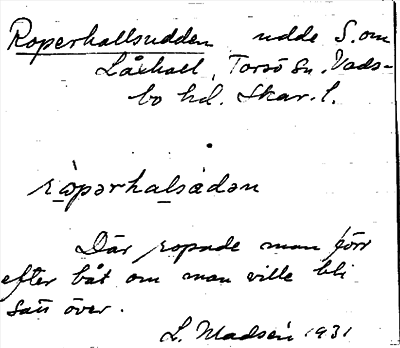 Roperhallsudden udde S. om
Låxhall, Torsö sn. Vads-
bo hd. Skar. l.
rωpərhalsadən
Där ropade man förr
efter båt om man ville bli
satt över.
L. Madsén 1931